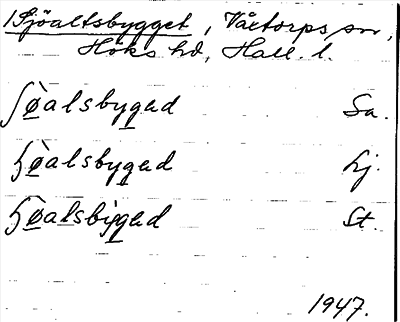 1 Sjöaltsbygget, Vårtorps sn,
Höks hd, Hall. l.
ʃø̀alsbygəd Sa.
ɧø̀alsbygəd Lj.
ɧø̀alsbygəd St.
1947.